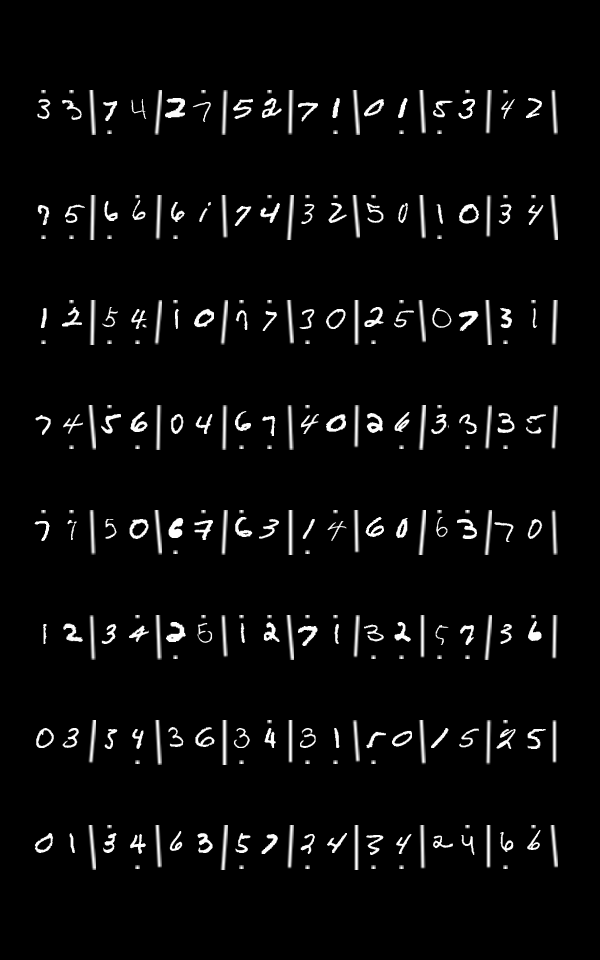 3̇ 3̇ | 7̣ 4 | 2 7̇ | 5 2̇ | 7 1̣ | 0 1̣ | 5̣ 3̇ | 4̇ 2 |
7̣ 5̣ | 6̣ 6̇ | 6̣ 1 | 7 4̇ | 3̇ 2̇ | 5̇ 0 | 1̣ 0 | 3̇ 4̇ |
1̣ 2̇ | 5̣ 4̣ | 1̇ 0 | 7̇ 7̇ | 3 0 | 2̣ 5̇ | 0 7 | 3̣ 1̇ |
7 4̣ | 5̇ 6̣ | 0 4 | 6̣ 7̣ | 4̇ 0 | 2 6̣ | 3̇ 3̣ | 3̣ 5̇ |
7̇ 7̇ | 5 0 | 6̣ 7̇ | 6 3 | 1̣ 4̇ | 6 0 | 6̇ 3̇ | 7 0 |
1 2 | 3 4̇ | 2̣ 5̇ | 1̇ 2̇ | 7̇ 1̇ | 3̣ 2̣ | 5̣ 7̣ | 3 6̇ |
0 3 | 3 4̣ | 3 6 | 3̇ 4̇ | 3 1̣ | 5̣ 0 | 1 5 | 2̇ 5 |
0 1 | 3̇ 4̣ | 6 3 | 5̣ 7 | 2̣ 4 | 3̣ 4̣ | 2 4̇ | 6̣ 6̇ |